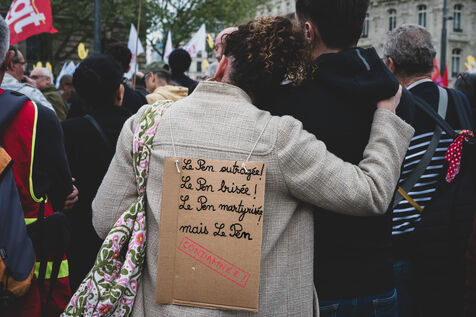 Le Pen outragée!
Le Pen brisée!
Le Pen martyrisée
mais Le Pen
CONDAMNÉE